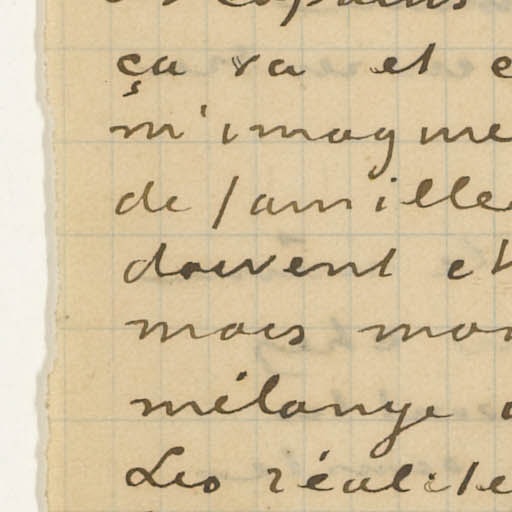 ça va et
m'imagine
de famille
doivent et
mais mon
mélange
Les réalité